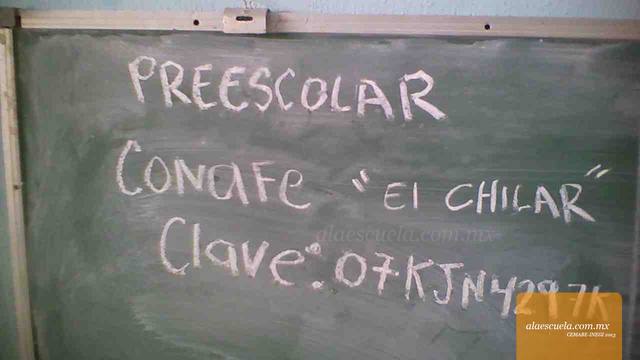 PREESCOLAR
CONAFE "El CHILAR"
alaescuela.com.mx
Clave: 07KJN4297K
alaescuela.com.mx
CEMABE-INEGI 2013